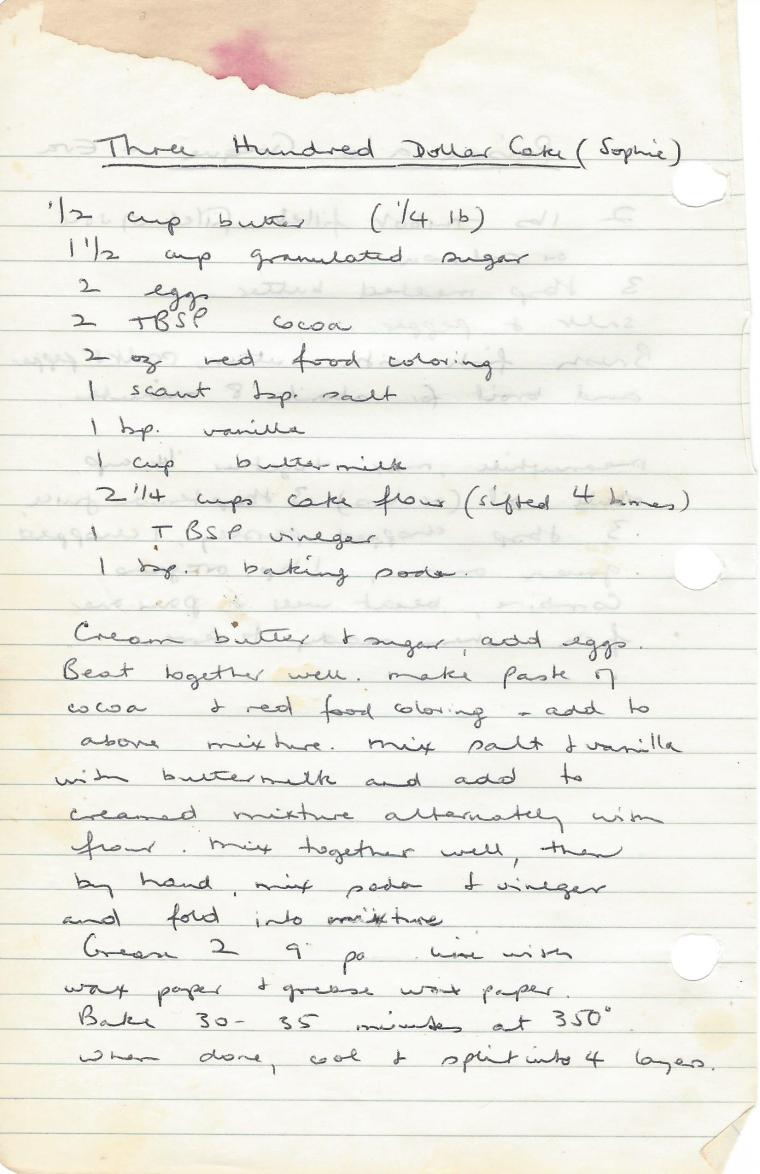 Three Hundred Dollar Cake (Sophie)
1/2 cup butter (1/4 lb)
1 1/2 cup granulated sugar
2 eggs
2 TBSP cocoa
2 oz red food coloring
1 scant tsp. salt
1 tsp. vanilla
1 cup buttermilk
2 1/4 cups cake flour (sifted 4 times)
1 TBSP vinegar
1 tsp. baking soda.
Cream butter & sugar, add eggs.
Beat together well. make paste of
cocoa & red food coloring - add to
above mixture. mix salt & vanilla
with buttermilk and add to
creamed mixture alternately with
flour. mix together well, then
by hand, mix soda & vinegar
and fold into mixture
Grease 2 9" pa line with
wax paper & grease wax paper.
Bake 30-35 minutes at 350°
when done, cool & split into 4 layers.